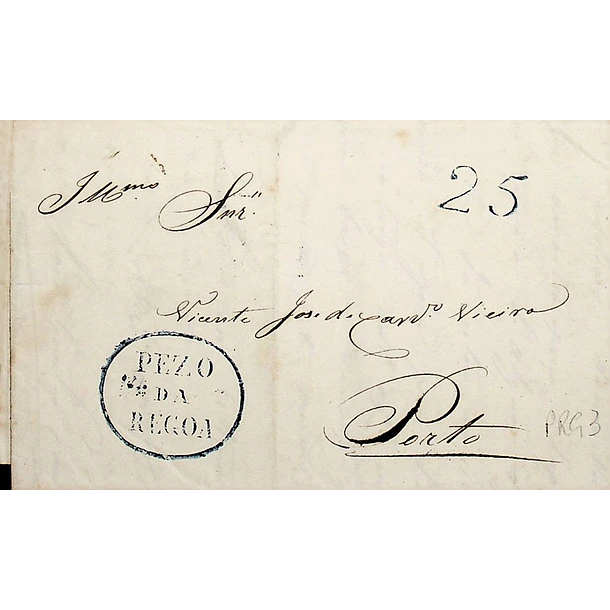 Illmo. Snr.
25
Vicente Jose de Carvo. Vieira
PEZO
DA
REGOA
Porto
PRG3